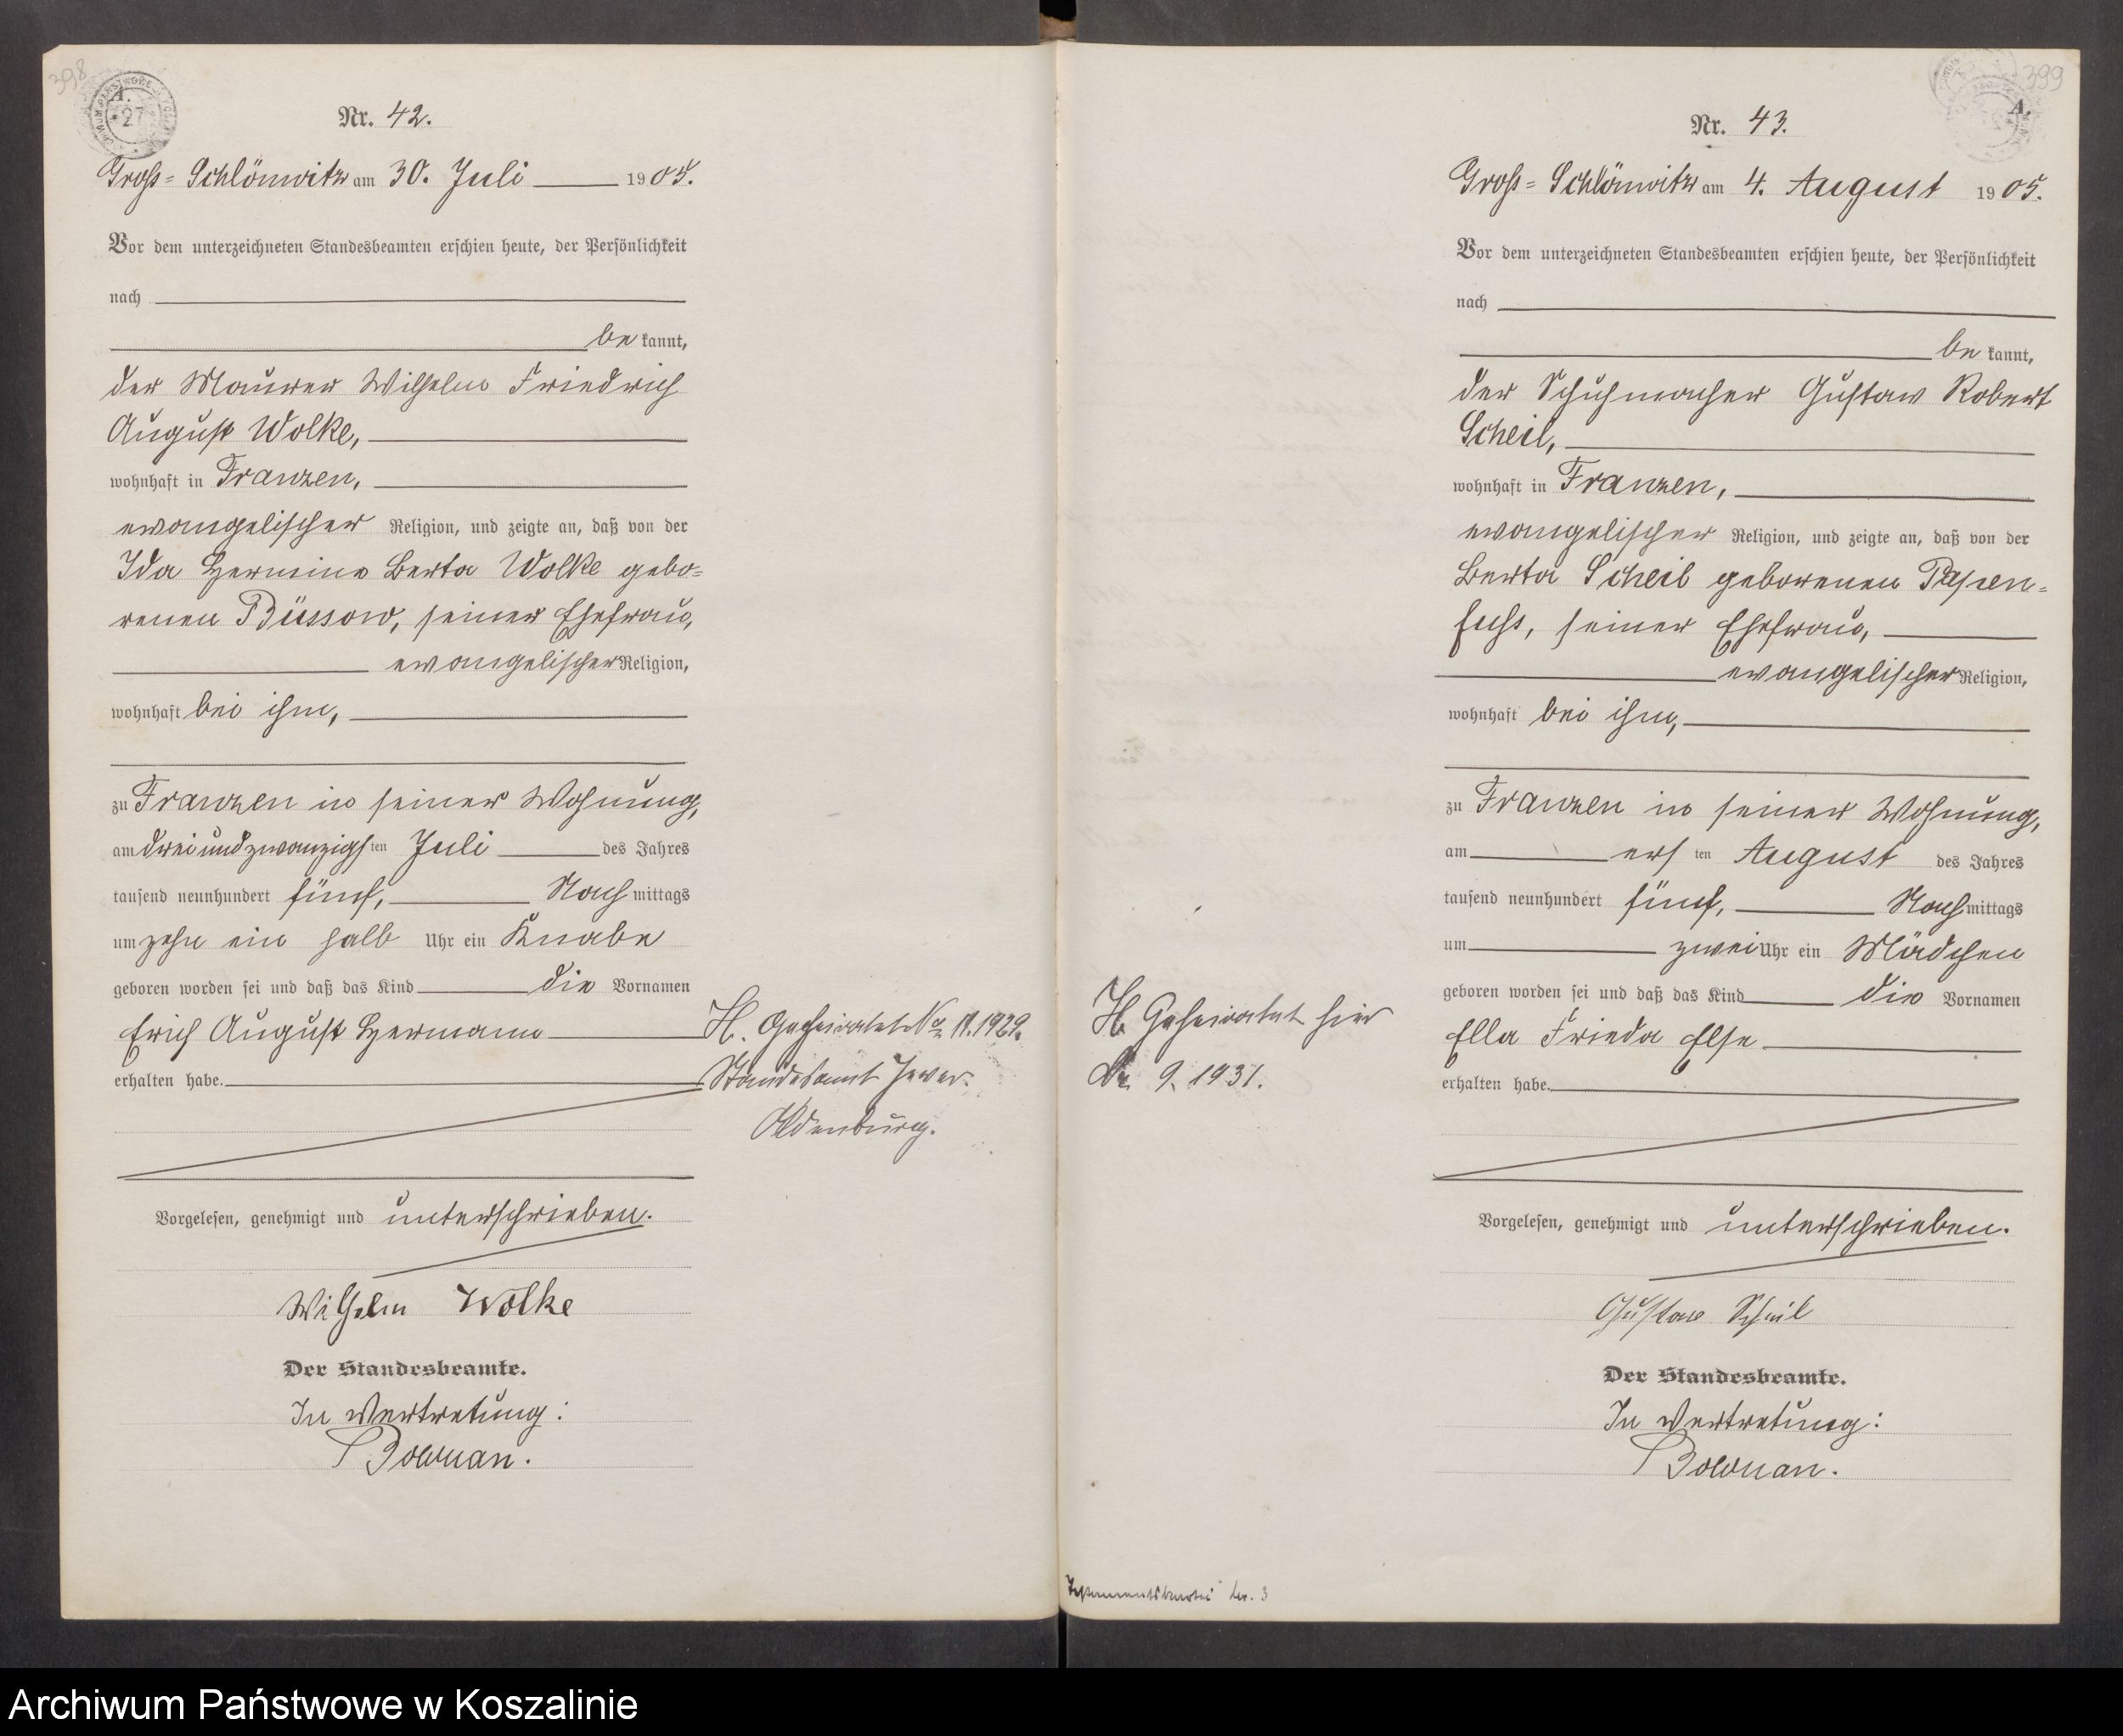 398
A.
27
Nr. 42.
Gross-Schlönwitz am 30. Juli 1905.
Vor dem unterzeichneten Standesbeamten erschien heute, der Persönlichkeit
nach
be kannt,
der Maurer Wilhelm Friedrich
August Wolke,
wohnhaft in Franzen,
evangelischer Religion, und zeigte an, daß von der
Ida Hermine Berta Wolke gebo=
renen Büssow, seiner Ehefrau,
evangelischer Religion,
wohnhaft bei ihm,
zu Franzen in seiner Wohnung,
am dreiundzwanzigsten Juli des Jahres
tausend neunhundert fünf, Nachmittags
um zehn ein halb Uhr ein Knabe
geboren worden sei und daß das Kind die Vornamen
Erich August Hermann
erhalten habe.
H. Geheiratet Nr. 11.1929.
Standesamt Jever.
Oldenburg.
Vorgelesen, genehmigt und unterschrieben.
Wilhelm Wolke
Der Standesbeamte.
In Vertretung:
399
A.
Nr. 43.
Gross-Schlönwitz am 4. August 1905.
Vor dem unterzeichneten Standesbeamten erschien heute, der Persönlichkeit
nach
be kannt,
der Schuhmacher Gustav Robert
Scheil,
wohnhaft in Franzen,
evangelischer Religion, und zeigte an, daß von der
Berta Scheil geborenen Papen=
fuss, seiner Ehefrau,
evangelischer Religion,
wohnhaft bei ihm,
zu Franzen in seiner Wohnung,
am ersten August des Jahres
tausend neunhundert fünf, Nachmittags
um zwei Uhr ein Mädchen
geboren worden sei und daß das Kind die Vornamen
Ella Frieda Else
erhalten habe.
H. Geheiratet hier
Nr. 9. 1931.
Vorgelesen, genehmigt und unterschrieben.
Gustav Scheil
Der Standesbeamte.
In Vertretung:
Testamentskartei Nr. 3
Archiwum Państwowe w Koszalinie